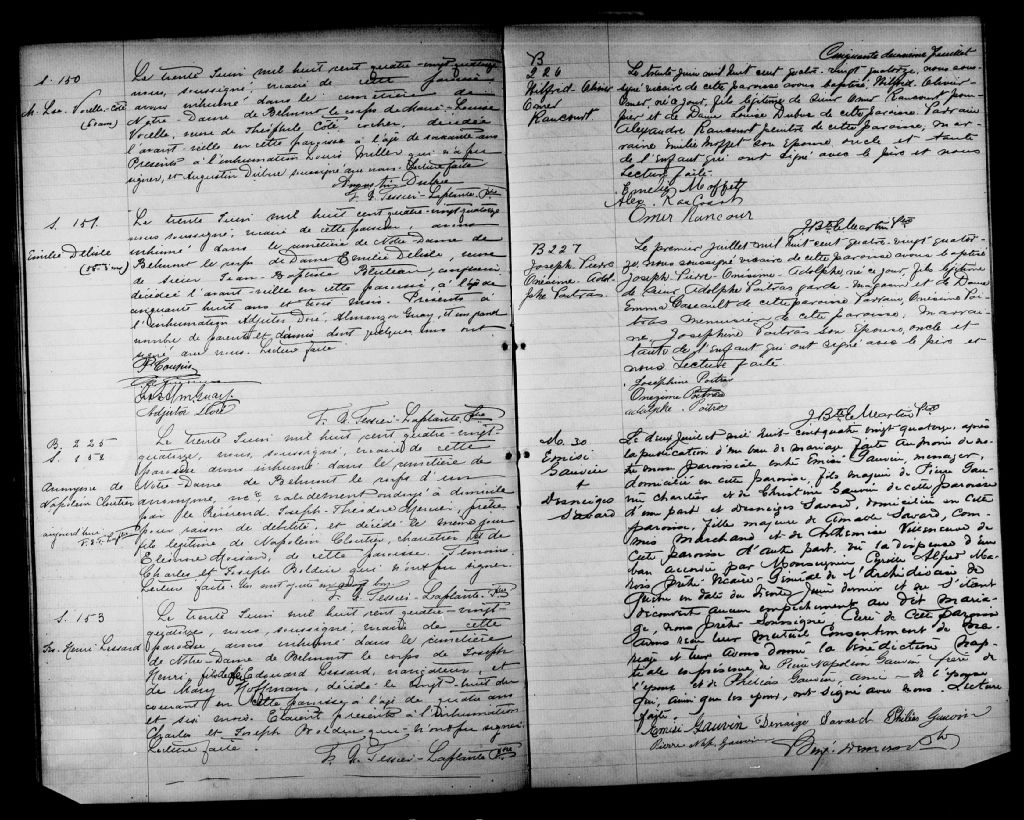 S. 150
M. Lse Voselle-Coté
(60 ans)
Le trente Juin mil huit cent quatre-vingt quatorze
nous, soussigné, vicaire de cette paroisse
avons inhumé dans le cimetière de
Notre-Dame de Belmont le corps de Marie-Louise
Voselle, veuve de Théophile Coté, cocher, décédée
l'avant veille en cette paroisse à l'âge de soixante ans
Présents à l'inhumation Louis Miller qui n'a pu
signer, et Augustin Dubuc soussigné avec nous. Lecture faite
Augustin Dubuc
F. X. Tessier-Laplante Ptre
S. 151.
Emilie Delisle
Le trente Juin mil huit cent quatre-vingt quatorze
nous soussigné, vicaire de cette paroisse, avons
inhumé dans le cimetière de Notre-Dame de
Belmont le corps de Dame Emilie Delisle, veuve
de sieur Jean-Baptiste
décédée l'avant-veille en cette paroisse, à l'âge de
cinquante huit ans et trois mois. Présents à
l'inhumation Adjutor Doré, Almanzor Guay, et un grand
nombre de parents et d'amis dont quelques uns ont
signé avec nous. Lecture faite
Adjutor Doré
F. X. Tessier-Laplante Ptre
B. 225
S. 152
Anonyme de
Napoléon Cloutier
aujourd'hui
Le trente Juin mil huit cent quatre-vingt-
quatorze, nous, soussigné, vicaire de cette
paroisse avons inhumé dans le cimetière de
Notre-Dame de Belmont le corps d'un
anonyme, né validement ondoyé à domicile
par le Révérend Joseph-Théodore Mercier, prêtre
pour raison de débilité, et décédé le même jour
fils légitime de Napoléon Cloutier, charretier et de
de cette paroisse. Témoins,
Charles et Joseph Bolduc qui n'ont pu signer.
Lecture faite. Un mot
F. X. Tessier-Laplante Ptre
S. 153
Jos. Henri Lessard
Le trente Juin mil huit cent quatre-vingt-
quatorze, nous, soussigné, vicaire de cette
paroisse avons inhumé dans le cimetière
de Notre-Dame de Belmont le corps de Joseph
Henri, fils de Edouard Lessard, navigateur et
de Mary Hoffman, décédé le vingt huit du
courant en cette paroisse à l'âge de quatre ans
et six mois. Etaient présents à l'inhumation
Charles et Joseph Bolduc qui n'ont pu signer.
Lecture faite
F. X. Tessier-Laplante Ptre
Cinquante deuxième feuillet
B
226
Wilfrid Olivier
Omer
Rancourt.
Le trente juin mil huit cent quatre-vingt quatorze, nous sous-
signé vicaire de cette paroisse avons baptisé, Wilfrid-Olivier-
Omer, né ce jour, fils légitime de Sieur Omer Rancourt pom-
pier et de Dame Louise Dubuc de cette paroisse. Parrain
Alexandre Rancourt peintre de cette paroisse, mar-
raine Emélie Moffet son épouse, oncle et tante
de l'enfant qui ont signé avec le père et nous
Lecture faite.
Emelie Moffet
Alex. Rancourt
Omer Rancour
J. Bte C. Martin Ptre
B 227
Joseph. Pierre
Onésime. Adol-
phe Poitras.
Le premier Juillet mil huit cent quatre-vingt quator-
ze, nous soussigné vicaire de cette paroisse avons baptisé
Joseph-Pierre-Onésime-Adolphe, né ce jour, fils légitime
de Sieur Adolphe Poitras garde-magasin et de Dame
Emma Cascault de cette paroisse Parrain, Onésime Poi-
tras menuisier de cette paroisse, Marrai-
ne, Josephine Poitras son épouse, oncle et
tante de l'enfant qui ont signé avec le père et
nous Lecture faite.
Josephine Poitras
Onezime Poitras
adolphe Poitra
J. Bte C. Martin Ptre
M. 30
Emisé
Gauvin
&
Demeiges
Savard
Le deux Juillet mil huit-cent quatre vingt quatorze, après
la publication d'un ban de mariage faite au prône de no-
tre messe paroissiale entre Emisé Gauvin, menager,
domicilié en cette paroisse, fils majeur de Pierre Gau-
vin charretier et de Christine Gauvin de cette paroisse
d'une part et Demeiges Savard, domiciliée en cette
paroisse, fille majeure de Savard, Com-
mis Marchand et de Villeneuve de
cette paroisse d'autre part. Vu la dispense d'un
ban accordée par Monseigneur Cyrille Alfred Ma-
rois Prêtre Vicaire-Général de l'Archidiocèse de
Québec en date du trente Juin dernier et ne s'étant
découvert aucun empêchement au dit maria-
ge, nous prêtre soussigné, Curé de cette paroisse
avons reçu leur mutuel consentement de ma-
riage et leur avons donné la bénédiction nup-
tiale en présence de Pierre Napoléon Gauvin frère de
l'époux et de Philéas Gauvin, ami de l'épouse
qui, ainsi que les époux, ont signé avec nous. Lecture
faite.
Emisé Gauvin Savard Philéas Gauvin
Pierre Nap. Gauvin
Benj. Demers Ptre